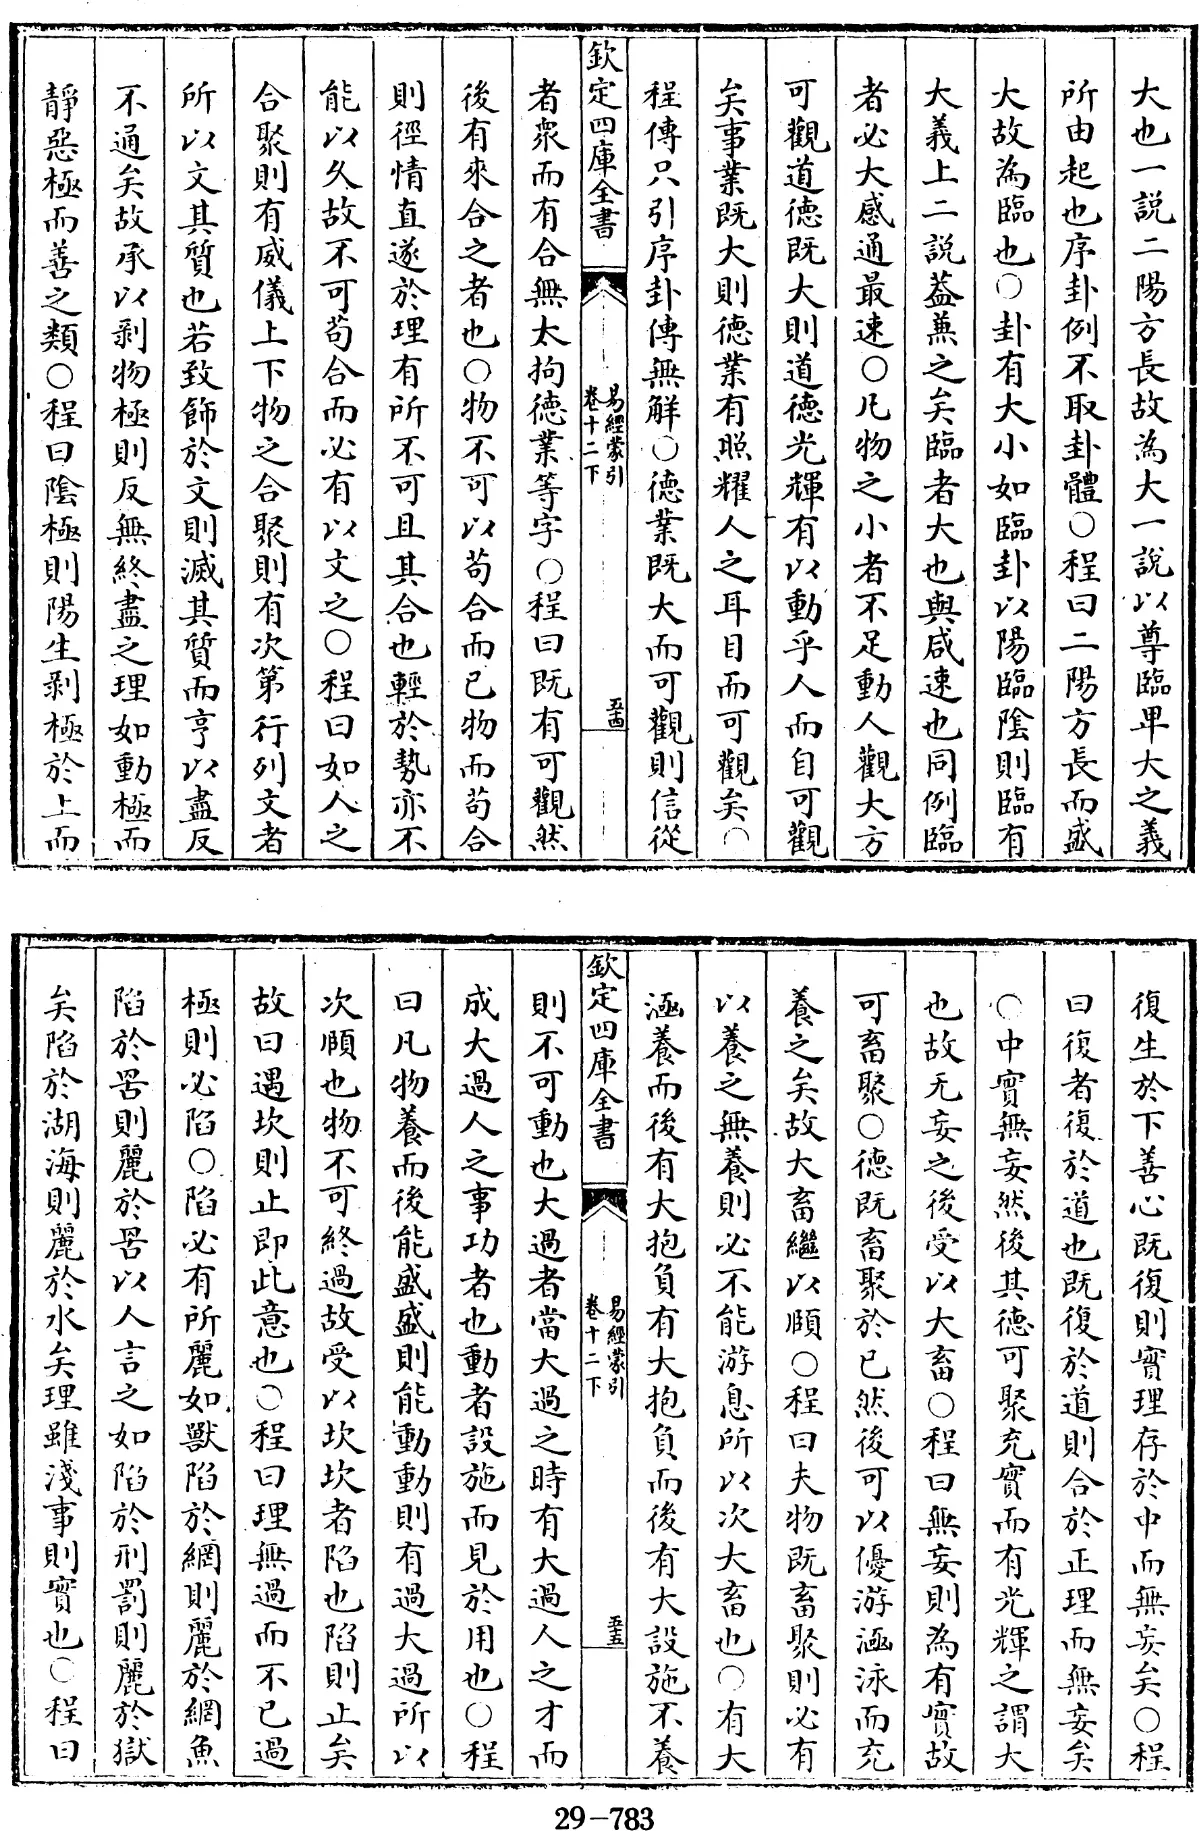 大也一説二陽方長故為大一說以尊臨卑大之義
所由起也序卦例不取卦體○程曰二陽方長而盛
大故為臨也○卦有大小如臨卦以陽臨陰則臨有
大義上二説葢蕉之矣臨者大也與咸速也同例臨
者必大感通最速○凡物之小者不足動人觀大方
可觀道德既大則道德光輝有以動乎人而自可觀
矣事業既大則德業有照耀人之耳目而可觀矣○
程傳只引序卦傳無解○德業既大而可觀則信從
欽定四庫全書
易經蒙引
卷十二下
五古
者衆而有合無太拘德業等字○程曰既有可觀然
後有來合之者也○物不可以苟合而已物而苟合
則徑情直遂於理有所不可且其合也輕於勢亦不
能以久故不可苟合而必有以文之○程曰如人之
合聚則有威儀上下物之合聚則有次第行列文者
所以文其質也若致飾於文則滅其質而亨以盡反
不通矣故承以剥物極則反無終盡之理如動極而
靜惡極而善之類○程曰陰極則陽生剥極於上而
復生於下善心既復則實理存於中而無妄矣○程
曰復者復於道也既復於道則合於正理而無妄矣
○中實無妄然後其德可聚充實而有光輝之謂大
也故无妄之後受以大畜○程曰無妄則為有實故
可畜聚○德既畜聚於已然後可以優游涵泳而充
養之矣故大畜繼以頤○程曰夫物既畜聚則必有
以養之無養則必不能游息所以次大畜也○有大
涵養而後有大抱負有大抱負而後有大設施不養
欽定四庫全書
易經蒙引
卷十二下
五五
則不可動也大過者當大過之時有大過人之才而
成大過人之事功者也動者設施而見於用也○程
曰凡物養而後能盛盛則能動動則有過大過所以
次頤也物不可終過故受以坎坎者陷也陷則止矣
故曰遇坎則止即此意也○程曰理無過而不已過
極則必陷○陷必有所麗如獸陷於網則麗於網魚
陷於罟則麗於罟以人言之如陷於刑罰則麗於獄
矣陷於湖海則麗於水矣理雖淺事則實也○程曰
29-783